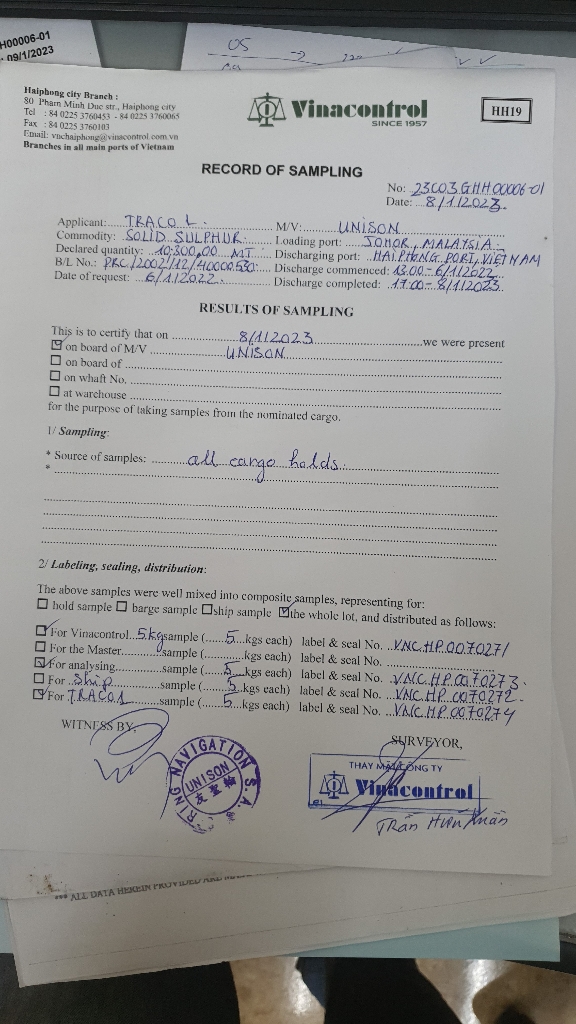 H00006-01
: 09/1/2023
05
Haiphong city Branch :
80 Pham Minh Duc str., Haiphong city
Tel : 84 0225 3760453 - 84 0225 3760065
Fax : 84 0225 3760103
Email: vnchaiphong@vinacontrol.com.vn
Branches in all main ports of Vietnam
Vinacontrol
SINCE 1957
HH19
RECORD OF SAMPLING
No: 23C03GHH00006-01
Date: 8/1/2023.
Applicant: TRACO 1. M/V: UNISON
Commodity: SOLID SULPHUR Loading port: JOHOR, MALAYSIA.
Declared quantity: 10.300,00 MT Discharging port: HAIPHONG PORT, VIETNAM
B/L No.: PRC/2002/12/40000530 Discharge commenced: 13.00 - 6/1/2022
Date of request: 6/1/2022. Discharge completed: 17.00 - 8/1/2023
RESULTS OF SAMPLING
This is to certify that on 8/1/2023 we were present
on board of M/V UNISON
on board of
on whaft No.
at warehouse
for the purpose of taking samples from the nominated cargo.
1/ Sampling:
* Source of samples: all cargo holds.
*
2/ Labeling, sealing, distribution:
The above samples were well mixed into composite samples, representing for:
hold sample barge sample ship sample the whole lot, and distributed as follows:
For Vinacontrol 5kg sample (5 kgs each) label & seal No. VNC.HP.0070271
For the Master sample (kgs each) label & seal No.
For analysing sample (5 kgs each) label & seal No. VNC.HP.0070273
For Ship sample (5 kgs each) label & seal No. VNC.HP.0070272
For TRACO1 sample (5 kgs each) label & seal No. VNC.HP.0070274
WITNESS BY,
SURVEYOR,
RING NAVIGATION S.A.
UNISON
友聖輪
THAY MẶT CÔNG TY
Vinacontrol
Trần Hữu Xuân
*** ALL DATA HEREIN PROVIDED ARE